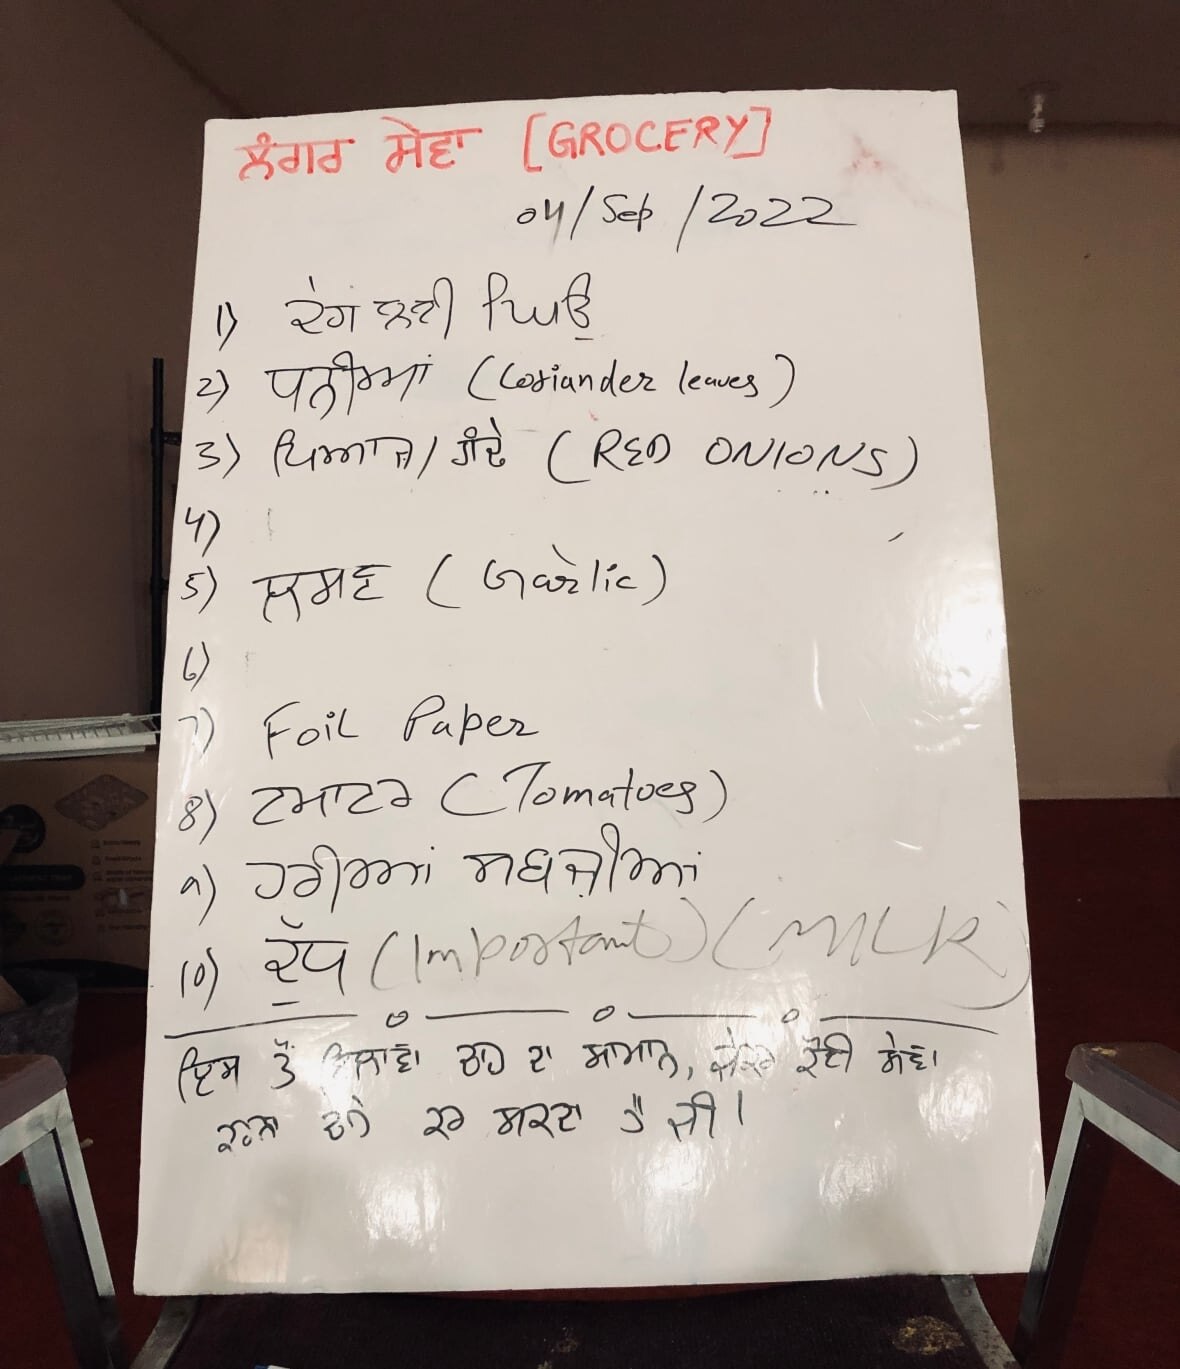 ਲੰਗਰ ਸੇਵਾ [GROCERY]
04/Sep/2022
1) ਦੇਗ ਲਈ ਘਿਓ
2) ਧਨੀਆਂ (Coriander leaves)
3) ਪਿਆਜ/ਗੰਢੇ (RED ONIONS)
4)
5) ਲਸਣ (Garlic)
6)
7) Foil Paper
8) ਟਮਾਟਰ (Tomatoes)
9) ਹਰੀਆਂ ਸਬਜ਼ੀਆਂ
10) ਦੁੱਧ (Important) (MILK)
ਇਸ ਤੋਂ ਇਲਾਵਾ ਚਾਹ ਦਾ ਸਾਮਾਨ, ਜੇਕਰ ਕੋਈ ਸੇਵਾ
ਕਰਨਾ ਚਾਹੇ ਕਰ ਸਕਦਾ ਹੈ ਜੀ।